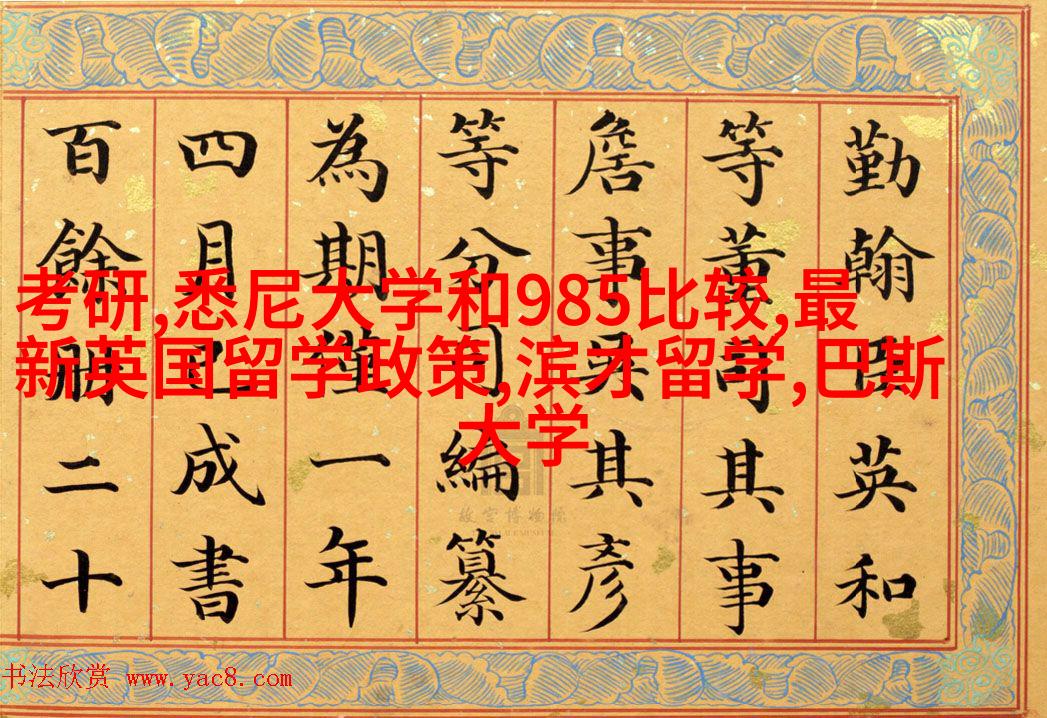 勤翰臣英和
等董司其事
詹事吴其彦
等分司編纂
為期一年
四月已成書
百餘冊二十
考研,悉尼大学和985比较,最
新英国留学政策,滨才留学,巴斯
大学
故宫博物院
书法欣赏 www.yac8.com